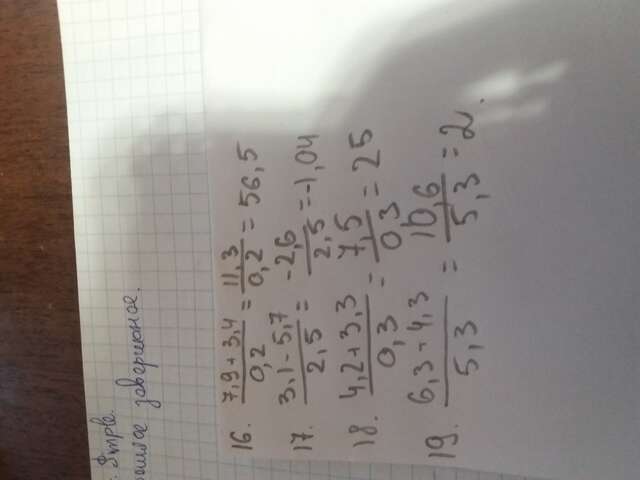 . Simple.
завершоное.
16. 7,9 + 3,4 / 0,2 = 11,3 / 0,2 = 56,5
17. 3,1 - 5,7 / 2,5 = -2,6 / 2,5 = -1,04
18. 4,2 + 3,3 / 0,3 = 7,5 / 0,3 = 25
19. 6,3 + 4,3 / 5,3 = 10,6 / 5,3 = 2.